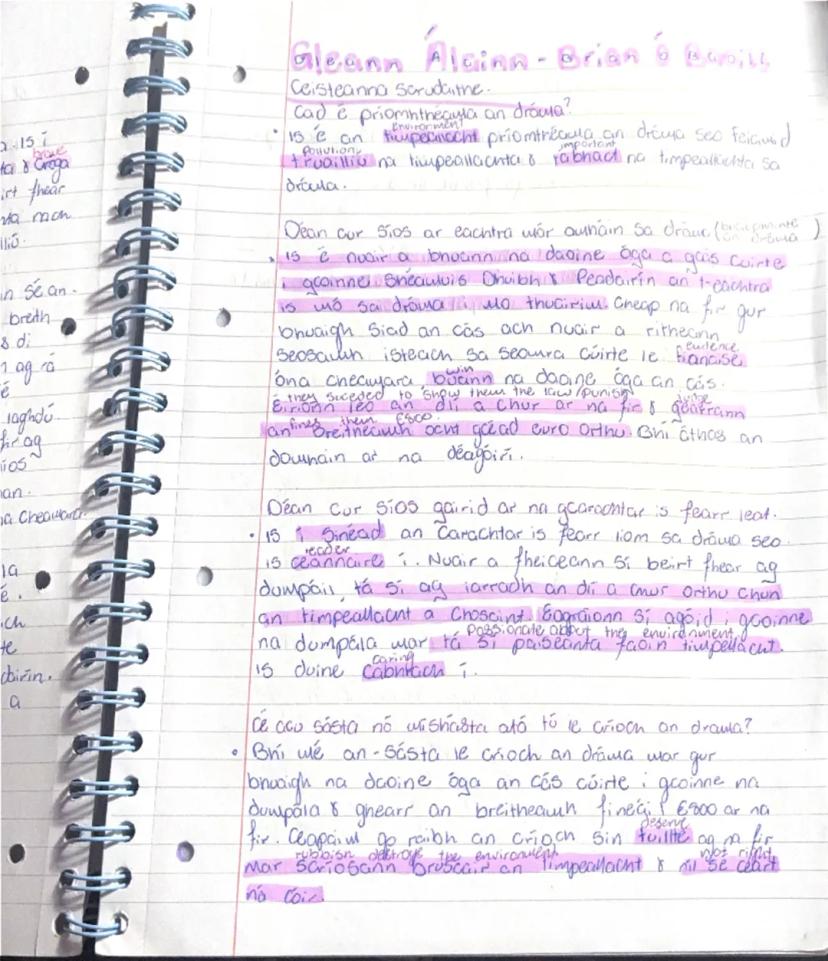 a is í
brave
ta & croga
irt fhear
nta nach
n Séan.
breith
s di
n ag rá
é
laghdú
fir ag
síos
an.
a Cheamara.
la
é.
ich
te
a
Gleann Álainn - Brian Ó Baoill
Ceisteanna scrúdaithe.
Cad é príomhthéama an dráma?
environment
• Is é an timpeallacht príomthéama an dráma seo feicimid
pollution important
truailliú na timpeallachta & tábhacht na timpeallachta sa
dráma.
Déan cur síos ar eachtra mór amháin sa dráma ( an dráma )
• Is é nuair a bhuann na daoine óga a gcás cúirte
i gcoinne Shéamuis Dhuibh & Peadairín an t-eachtra
is mó sa dráma i mo thuairim. Cheap na fir gur
bhuaigh siad an cás ach nuair a ritheann
evidence
seosamh isteach sa seomra cúirte le fianaise
win
óna cheamara buann na daoine óga an cás.
they succeded to show them the law/punish judge
Éiríonn leo an dlí a chur ar na fir & gearrann
fines them €800.
an breitheamh ocht gcéad euro orthu. Bhí áthas an
domhain ar na déagóirí.
Déan cur síos gairid ar na gcarachtar is fearr leat.
• Is í Sinéad an carachtar is fearr liom sa dráma seo.
leader
is ceannaire í. Nuair a fheiceann sí beirt fhear ag
dumpáil, tá sí ag iarradh an dlí a chur orthu chun
an timpeallacht a chosaint. Eagraíonn sí agóid i gcoinne
passionate about the environment.
na dumpála mar tá sí paiseanta faoin timpellacht.
caring
is duine cabhrach í.
Cé acu sásta nó míshásta atá tú le críoch an drama?
• Bhí mé an-sásta le críoch an dráma mar gur
bhuaigh na daoine óga an cás cúirte i gcoinne na
dumpála & ghearr an breitheamh fíneáil €800 ar na
deserve
fir. Ceapaim go raibh an críoch sin tuillte ag na fir
rubbish destroys the environment not right
mar scriosann bruscair an timpeallacht & níl sé ceart
ná cóir.